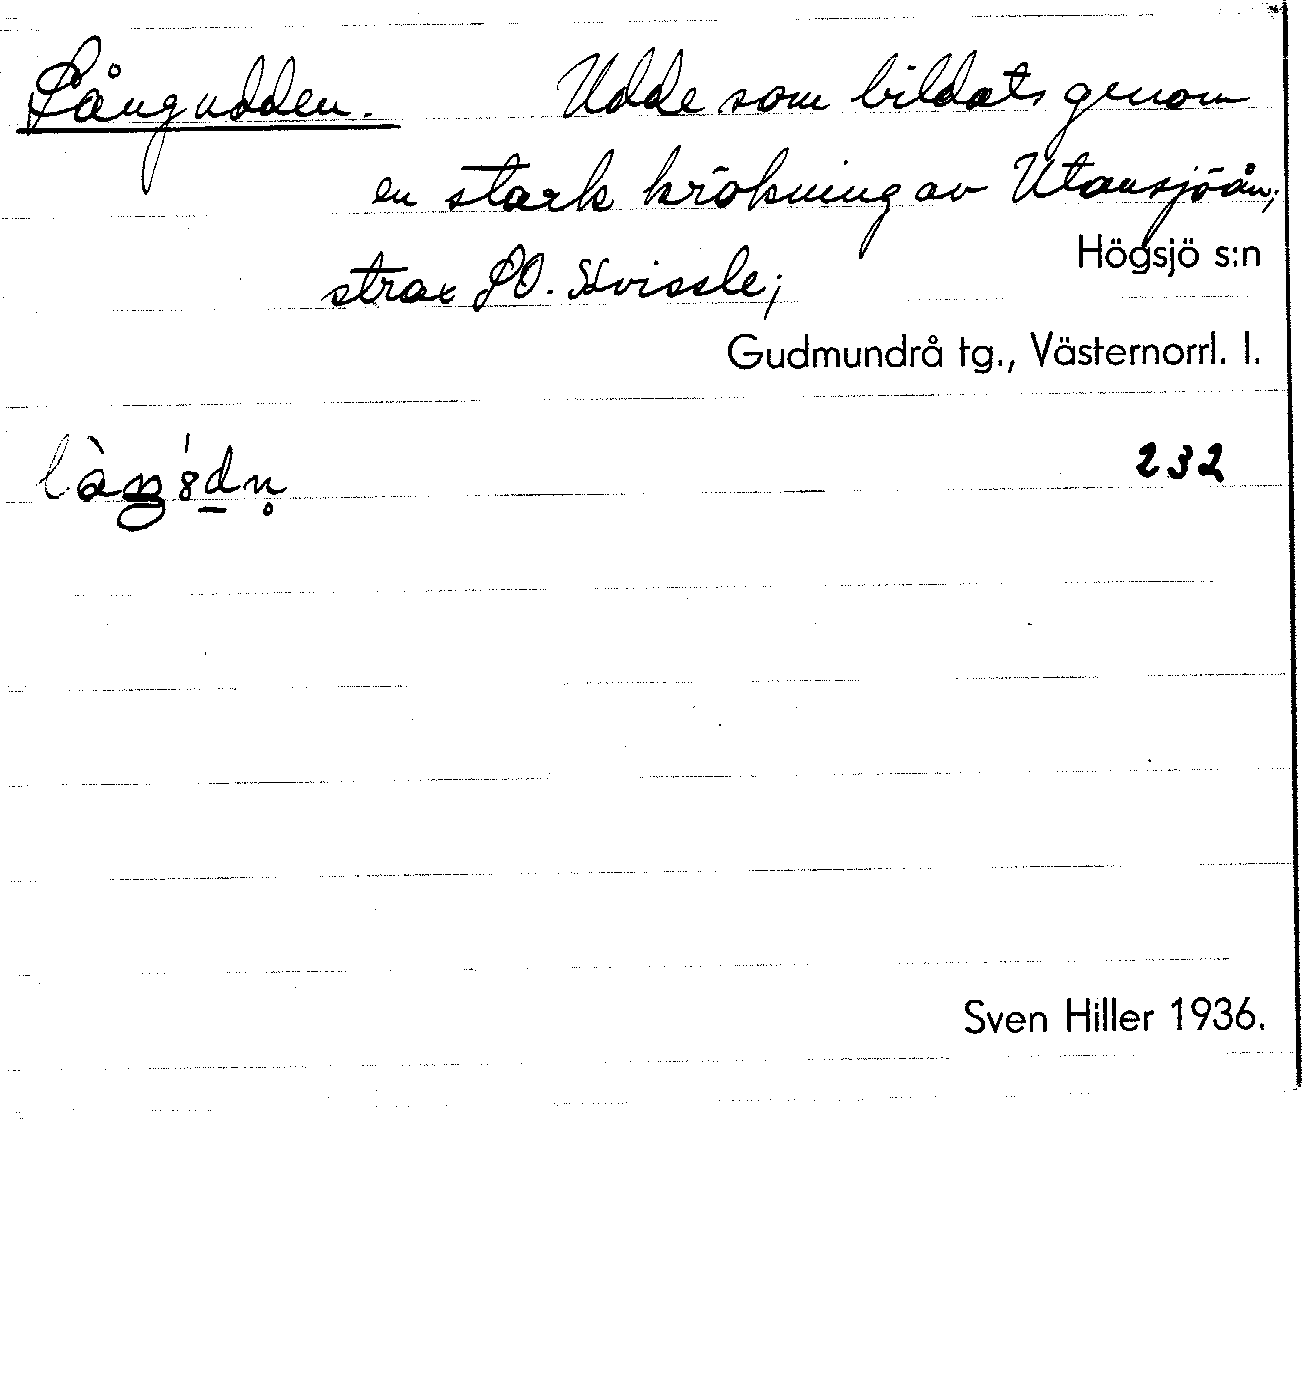 Långudden. Udde som bildats genom
en stark krökning av Utansjöån,
Högsjö s:n
strax SO. Hvissle;
Gudmundrå tg., Västernorrl. l.
232
Sven Hiller 1936.